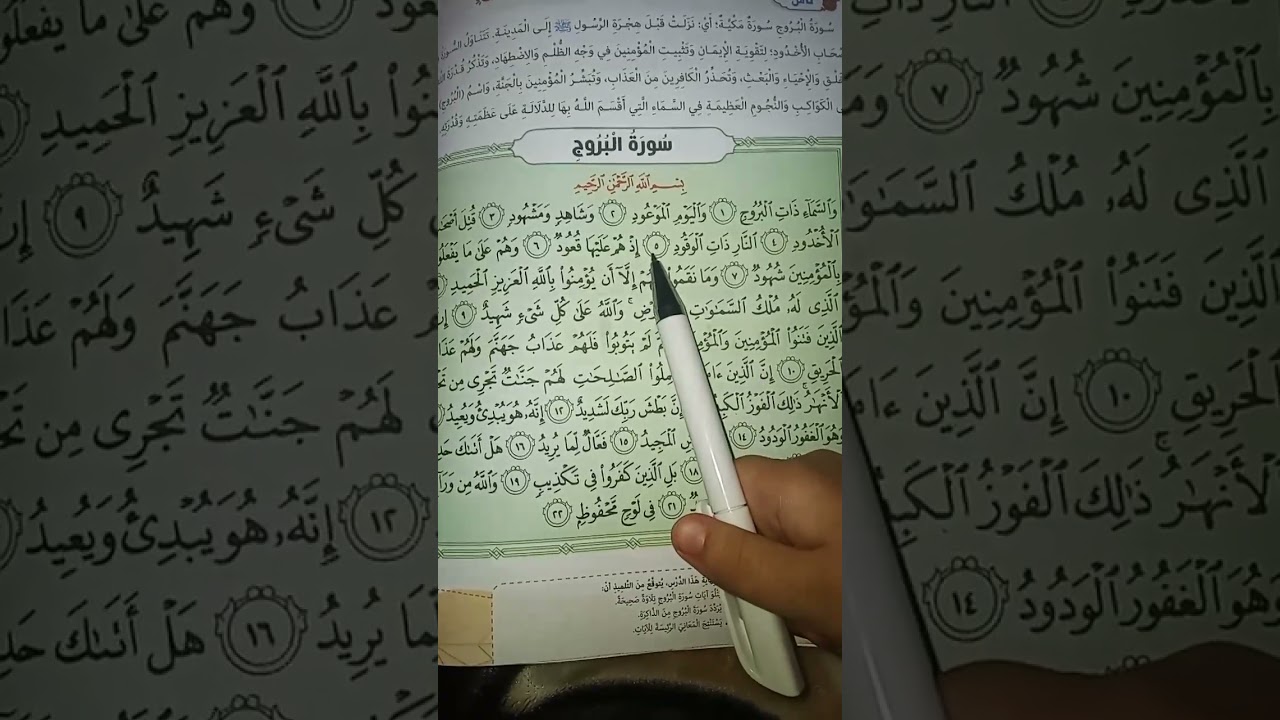 سُورَةُ الْبُرُوجِ سُورَةٌ مَكِّيَّةٌ؛ أَيْ: نَزَلَتْ قَبْلَ هِجْرَةِ الرَّسُولِ ﷺ إِلَى الْمَدِينَةِ. تَتَنَاوَلُ السُّورَةُ
الْأُخْدُودِ؛ لِتَقْوِيَةِ الْإِيمَانِ وَتَثْبِيتِ الْمُؤْمِنِينَ فِي وَجْهِ الظُّلْمِ وَالِاضْطِهَادِ، وَتَذْكُرُ قُدْرَةَ
وَالْإِحْيَاءِ وَالْبَعْثِ، وَتُحَذِّرُ الْكَافِرِينَ مِنَ الْعَذَابِ، وَتُبَشِّرُ الْمُؤْمِنِينَ بِالْجَنَّةِ، وَاسْمُ (الْبُرُوجِ)
الْكَوَاكِبِ وَالنُّجُومِ الْعَظِيمَةِ فِي السَّمَاءِ الَّتِي أَقْسَمَ اللَّهُ بِهَا لِلدَّلَالَةِ عَلَى عَظَمَتِهِ وَقُدْرَتِهِ
سُورَةُ الْبُرُوجِ
بِسْمِ ٱللَّهِ ٱلرَّحْمَٰنِ ٱلرَّحِيمِ
وَٱلسَّمَآءِ ذَاتِ ٱلْبُرُوجِ ١ وَٱلْيَوْمِ ٱلْمَوْعُودِ ٢ وَشَاهِدٍ وَمَشْهُودٍ ٣ قُتِلَ
ٱلْأُخْدُودِ ٤ ٱلنَّارِ ذَاتِ ٱلْوَقُودِ ٥ إِذْ هُمْ عَلَيْهَا قُعُودٌ ٦ وَهُمْ عَلَىٰ مَا
بِٱلْمُؤْمِنِينَ شُهُودٌ ٧ وَمَا إِلَّآ أَن يُؤْمِنُوا۟ بِٱللَّهِ ٱلْعَزِيزِ ٱلْحَمِيدِ
ٱلَّذِى لَهُۥ مُلْكُ ٱلسَّمَٰوَٰتِ وَٱللَّهُ عَلَىٰ كُلِّ شَىْءٍ شَهِيدٌ ٩
ٱلَّذِينَ فَتَنُوا۟ ٱلْمُؤْمِنِينَ لَمْ يَتُوبُوا۟ فَلَهُمْ عَذَابُ جَهَنَّمَ وَلَهُمْ
ٱلْحَرِيقِ ١٠ إِنَّ ٱلَّذِينَ ٱلصَّٰلِحَٰتِ لَهُمْ جَنَّٰتٌ تَجْرِى مِن
ٱلْأَنْهَٰرُ ذَٰلِكَ ٱلْفَوْزُ إِنَّ بَطْشَ رَبِّكَ لَشَدِيدٌ ١٢ إِنَّهُۥ هُوَ يُبْدِئُ وَيُعِيدُ
وَهُوَ ٱلْغَفُورُ ٱلْوَدُودُ ١٤ ٱلْمَجِيدُ ١٥ فَعَّالٌ لِّمَا يُرِيدُ ١٦ هَلْ أَتَىٰكَ
١٨ بَلِ ٱلَّذِينَ كَفَرُوا۟ فِى تَكْذِيبٍ ١٩ وَٱللَّهُ مِن
٢١ فِى لَوْحٍ مَّحْفُوظٍۭ ٢٢
هَذَا الدَّرْسِ، يُتَوَقَّعُ مِنَ التِّلْمِيذِ أَنْ:
يَتْلُوَ آيَاتِ سُورَةِ الْبُرُوجِ تِلَاوَةً صَحِيحَةً.
يُرَدِّدَ سُورَةَ الْبُرُوجِ مِنَ الذَّاكِرَةِ.
يَسْتَنْتِجَ الْمَعَانِيَ الرَّئِيسَةَ لِلْآيَاتِ.